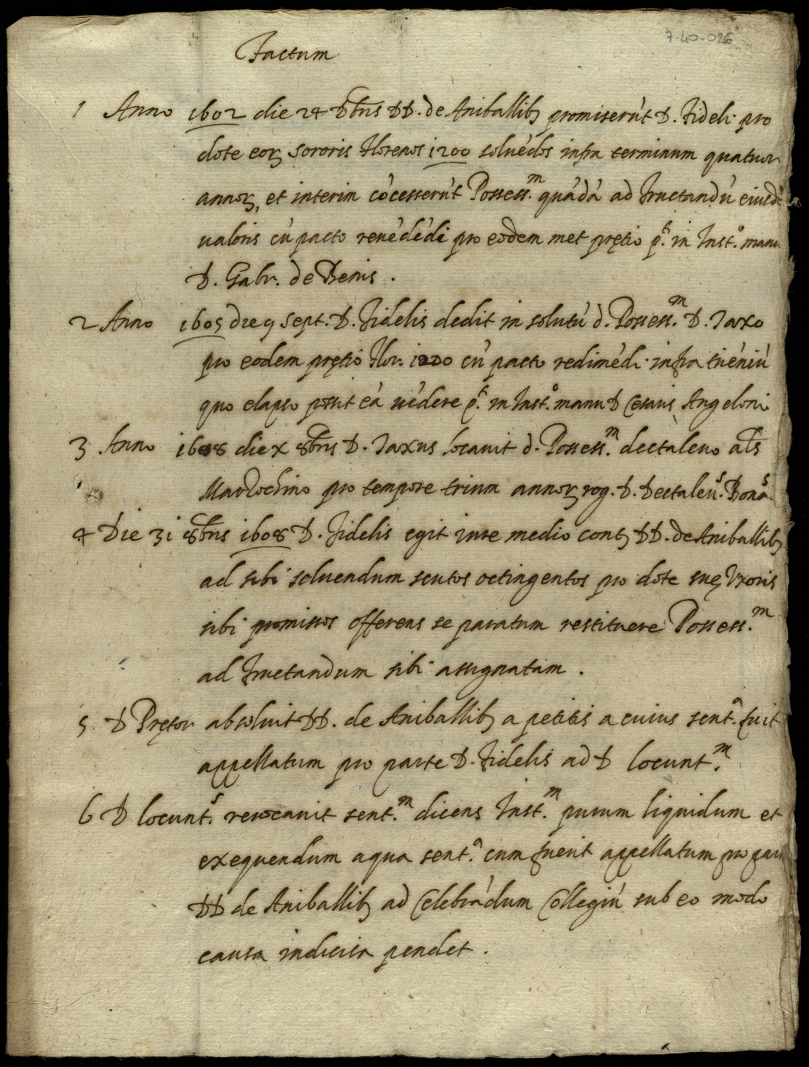 7-40-026
Factum
1 Anno 1602 die 24 Xbris DD. de Aniballibꝫ promiserūt D. Fideli pro
dote eoꝝ sororis florenos 1200 soluēdos infra terminum quatuor
annoꝝ, et interim cōcesserūt Possess.m quādā ad fructandū eiusdē
ualoris cū pacto reuēdēdi pro eodem met pretio pt. in Inst.o manu
D. Gabr. de Benis.
2 Anno 1605 die 9 Sept. D. Fidelis dedit in solutū d. Possess.m D. Taxo
pro eodem pretio flor. 1200 cū pacto redimēdi infra triēniū
quo elapso possit eā uēdere pt. in Inst.o manu D Angeloni
3 Anno 1608 die x 8bris D. Taxus locauit d. Possess.m als
pro tempore trium annoꝝ rog. D.
4 Die 31 8bris 1608 D. Fidelis egit iure medio contꝫ DD. de Aniballibꝫ
ad sibi soluendum scutos octingentos pro dote suę Vxoris
sibi promissos offerens se paratum restituere Possess.m
ad fructandum sibi assignatam.
5 D Pretor absoluit DD. de Aniballibꝫ a petitis a cuius sent.a fuit
appellatum pro parte D. Fidelis ad D locunt.m
6 D locunt.s reuocauit sent.m dicens Inst.m purum liquidum et
exequendum a qua sent.a cum fuerit appellatum pro par
DD de Aniballibꝫ ad Celebrādum Collegiū sub eo modo
causa indicisa pendet.